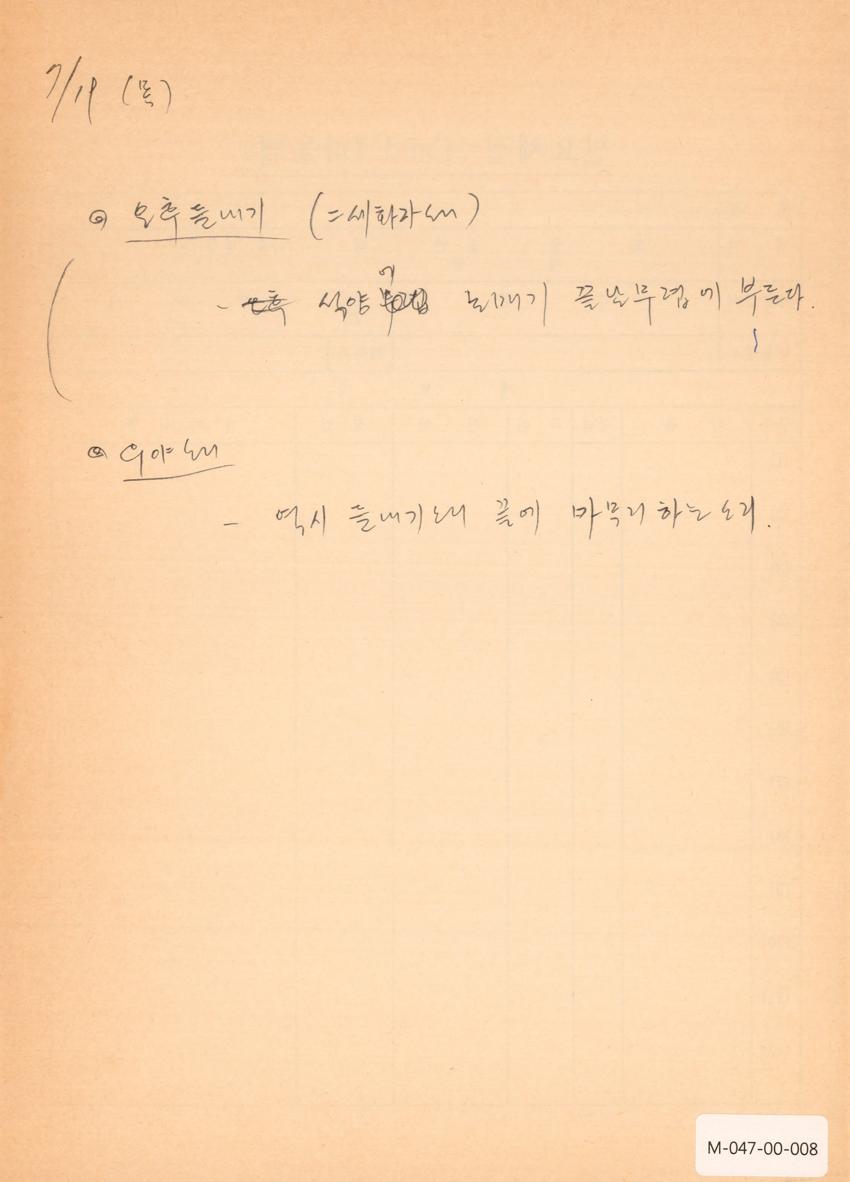 7/19 (목)
오후들내기 (=세화자소래)
- 석양에 되매기 끝날무렵에 부른다.
우야소래
- 역시 들내기소래 끝에 마무리하는 소리.
M-047-00-008